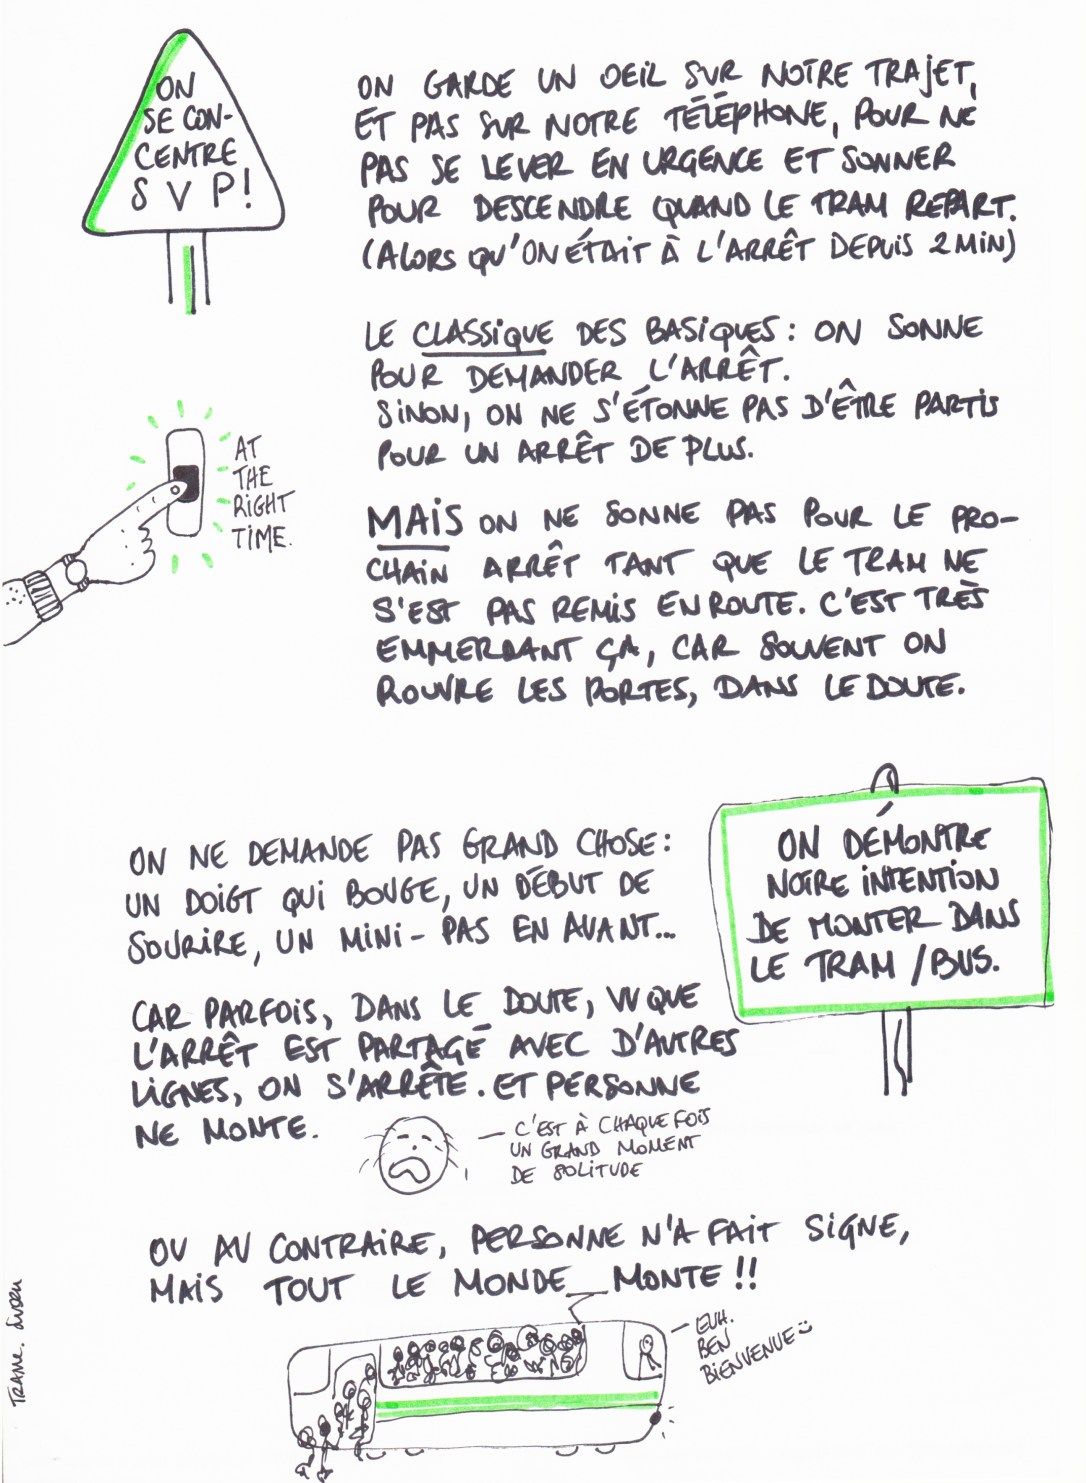 ON
SE CON-
CENTRE
S V P!
ON GARDE UN OEIL SUR NOTRE TRAJET,
ET PAS SUR NOTRE TÉLÉPHONE, POUR NE
PAS SE LEVER EN URGENCE ET SONNER
POUR DESCENDRE QUAND LE TRAM REPART.
(ALORS QU'ON ÉTAIT À L'ARRÊT DEPUIS 2 MIN)
LE CLASSIQUE DES BASIQUES: ON SONNE
POUR DEMANDER L'ARRÊT.
SINON, ON NE S'ÉTONNE PAS D'ÊTRE PARTIS
POUR UN ARRÊT DE PLUS.
AT
THE
RIGHT
TIME.
MAIS ON NE SONNE PAS POUR LE PRO-
CHAIN ARRÊT TANT QUE LE TRAM NE
S'EST PAS REMIS EN ROUTE. C'EST TRÈS
EMMERDANT ÇA, CAR SOUVENT ON
ROUVRE LES PORTES, DANS LE DOUTE.
ON DÉMONTRE
NOTRE INTENTION
DE MONTER DANS
LE TRAM /BUS.
ON NE DEMANDE PAS GRAND CHOSE:
UN DOIGT QUI BOUGE, UN DÉBUT DE
SOURIRE, UN MINI-PAS EN AVANT...
CAR PARFOIS, DANS LE DOUTE, VU QUE
L'ARRÊT EST PARTAGÉ AVEC D'AUTRES
LIGNES, ON S'ARRÊTE. ET PERSONNE
NE MONTE.
— C'EST À CHAQUE FOIS
UN GRAND MOMENT
DE SOLITUDE
OU AU CONTRAIRE, PERSONNE N'A FAIT SIGNE,
MAIS TOUT LE MONDE MONTE!!
— EUH.
BEN
BIENVENUE
TRAME.